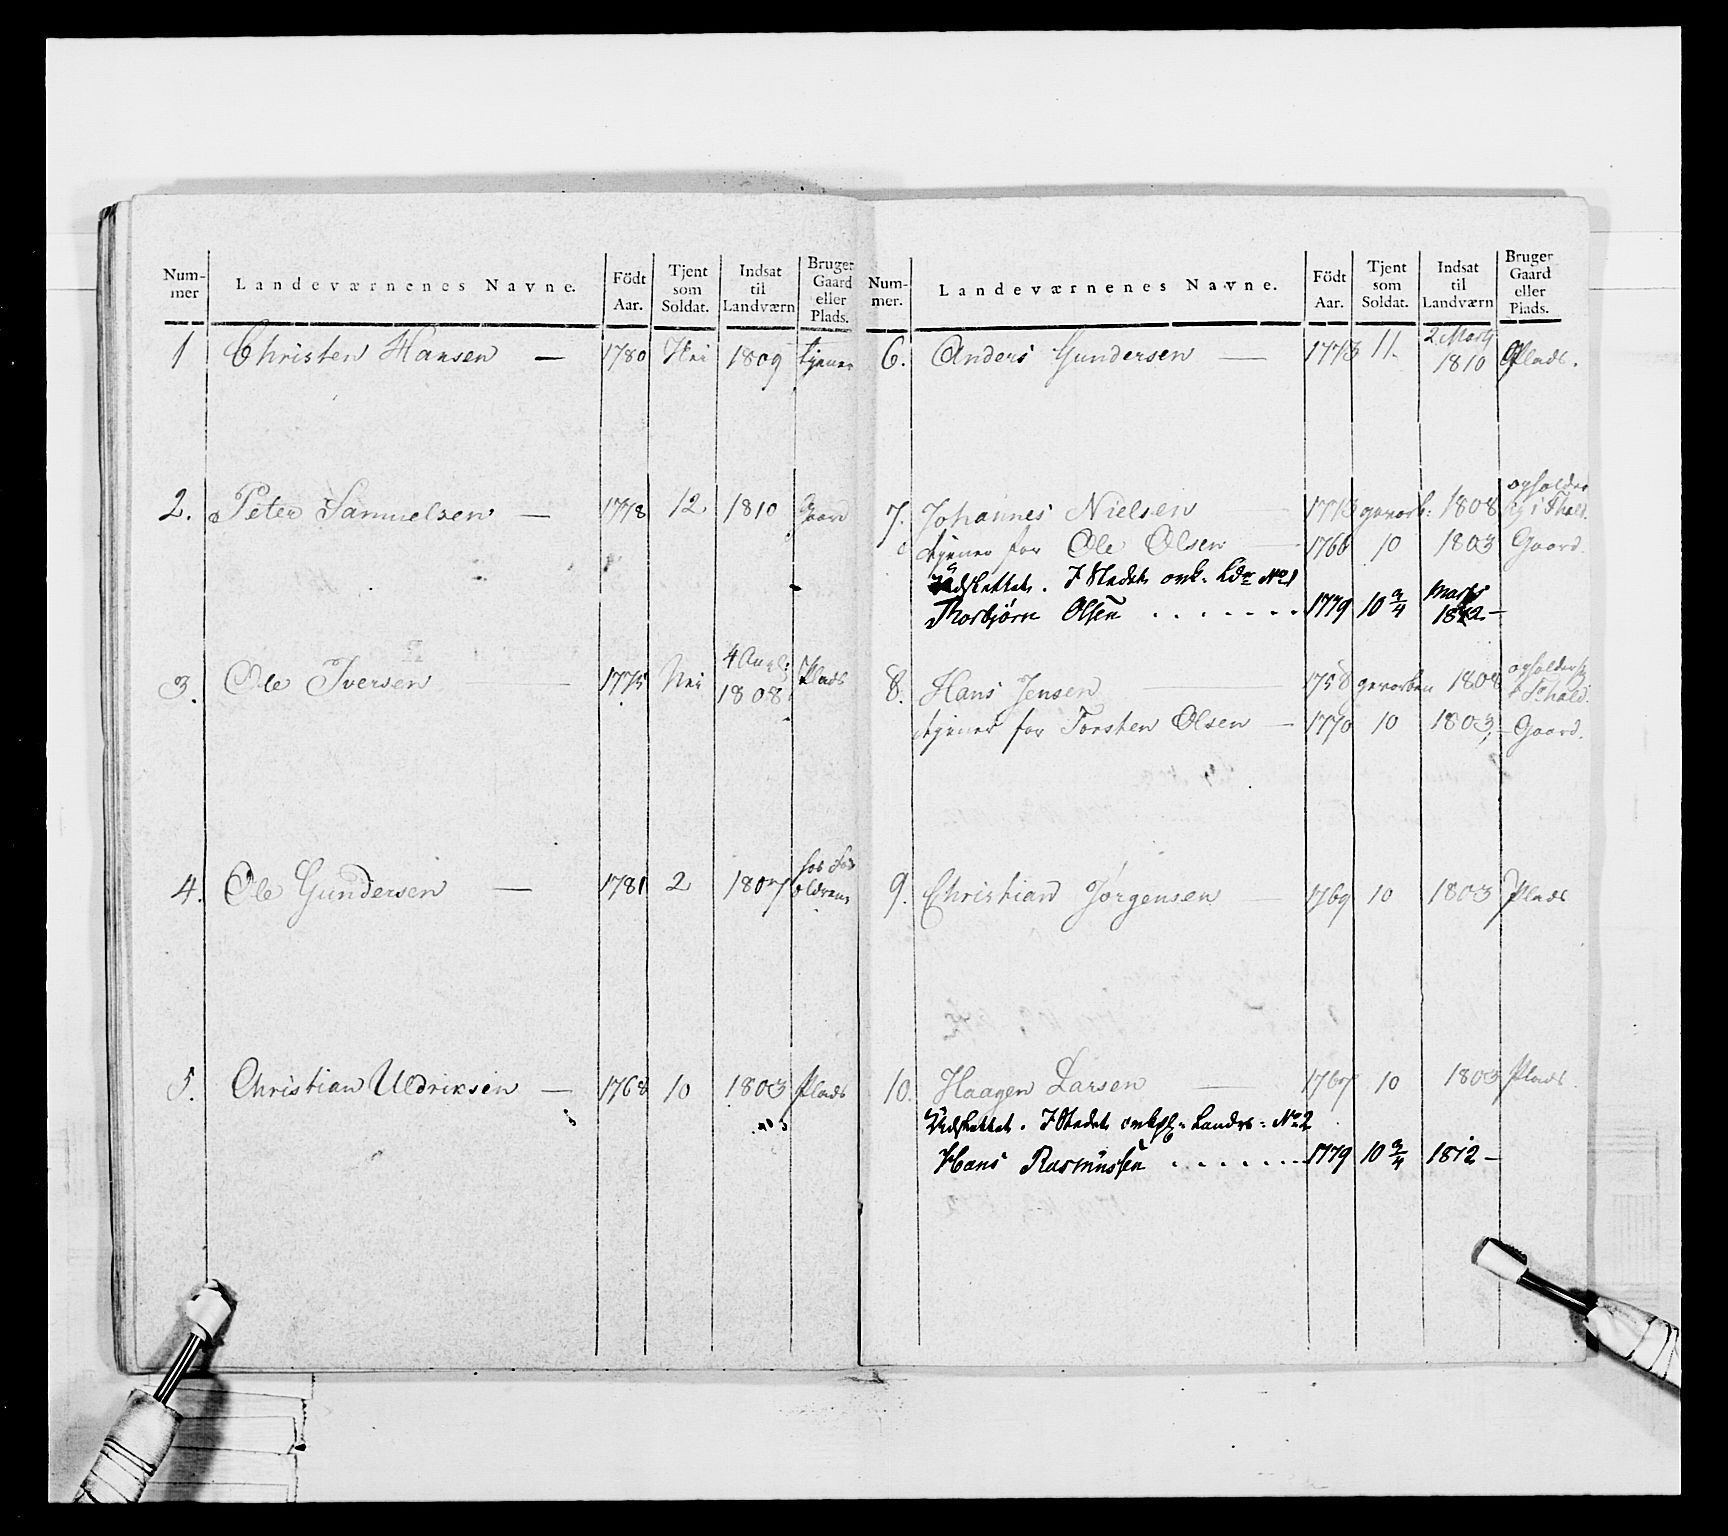 Num-
mer
Landeværnenes Navne.
Födt
Aar.
Tjent
som
Soldat.
Indsat
til
Landværn
Bruger
Gaard
eller
Plads.
1 Christen Hansen — 1780 Nei 1809 tjener
2. Peter Samuelsen — 1778 12 1810 Gaard
3. Ole Iversen — 1775 Nei 4 Aug: 1808 Plads
4. Ole Gundersen — 1781 2 1807 hos For
oldrene
5. Christian Uldriksen — 1768 10 1803 Plads
Num-
mer.
Landeværnenes Navne.
Födt
Aar.
Tjent
som
Soldat.
Indsat
til
Landværn
Bruger
Gaard
eller
Plads.
6. Anders Gundersen — 1773 11. 2 Marts 1810 Plads.
7. Johannes Nielsen 1773 gevorb: 1808 opholder
sig i Fhald.
tjener for Ole Olsen 1766 10 1803 Gaard.
Udskattet. I Stedet No 1
Thorbjørn Olsen . . . . . . . 1779 10 3/4 Marts 1812 —
8. Hans Jensen — 1758 gevorben 1808 opholder
i Fhald.
tjener for Torsten Olsen — 1770 10 1803. Gaard.
9. Christian Jørgensen — 1769 10 1803 Plads
10. Haagen Larsen — 1767 10 1803 Plads.
Udskattet. I Stedet Landv: No 2
Hans Rasmussen . . . . . . . 1779 10 3/4 1812 —